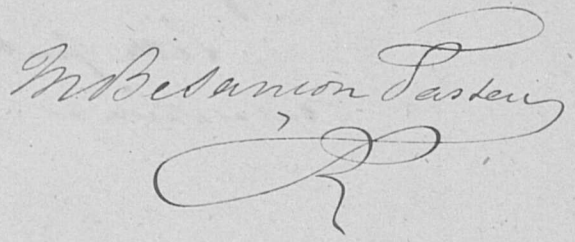 M Besançon Pasteur